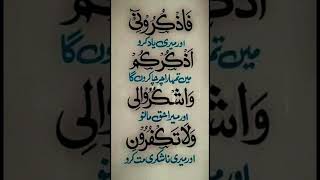 فَاذْكُرُونِيْٓ
اور میری یاد کرو
اَذْكُرْكُمْ
میں تمہارا چرچا کروں گا
وَاشْكُرُوْالِيْ
اور میرا حق مانو
وَلَا تَكْفُرُوْنِ
اور میری ناشکری مت کرو